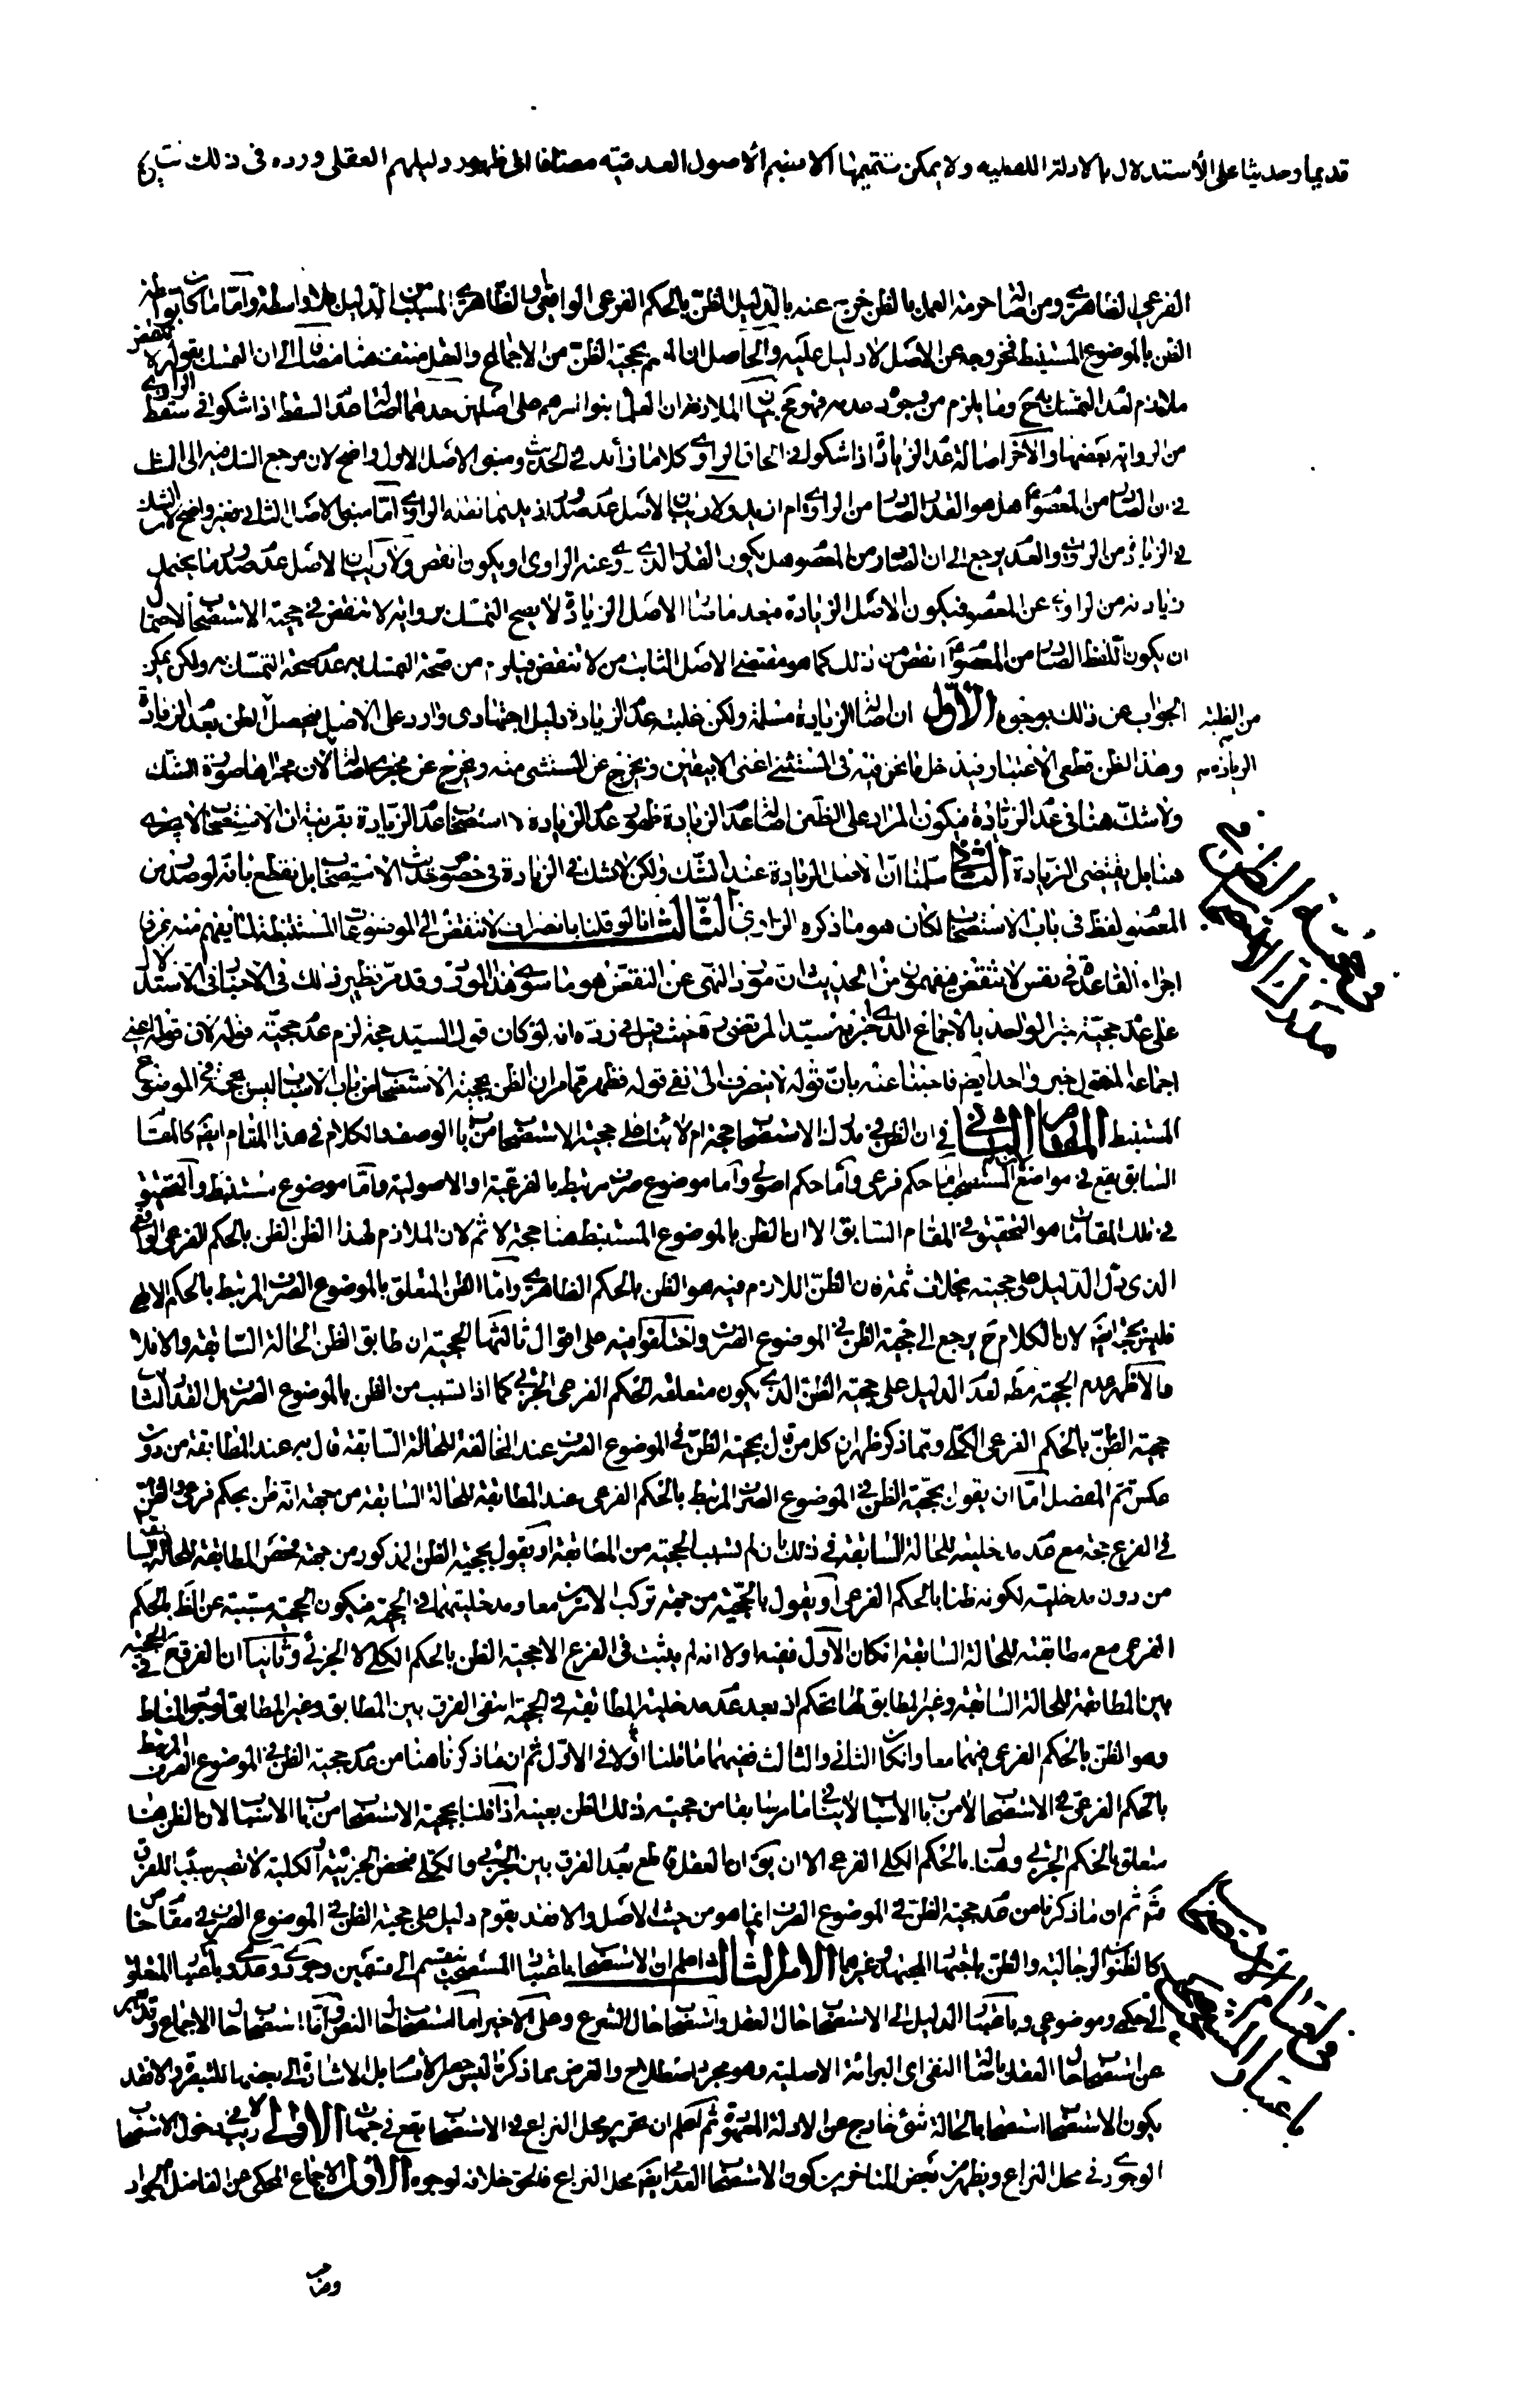 قديما وحديثا على الاستدلال بالادلة اللفظيه ولا يمكن تتميمها الا بضم الاصول العدميه مضافا الى ظهور دليلهم العقلى ورده فى ذلك
الفرعى الظاهرى ومن اصالة حرمة العمل بالظن خرج عنه بالدليل الظن بالحكم الفرعى الواقعى والظاهرى المسبب من الدليل بلا واسطة واما ما كان بتوسط
الظن بالموضوع المستنبط فخروجه عن الاصل لا دليل عليه والحاصل ان حجية الظن من الاجماع والعقل منتف هنا مضافا الى ان التمسك بقوله لا تنقض
ملازم لعدم التمسك به ح وما يلزم من وجوده عدمه فهو مح بيان الملازمة ان العلماء بنوا امرهم على اصلين احدهما اصالة عدم السقط اذا شكوا فى سقط الراوى
من الرواية بعضها والاخر اصالة عدم الزيادة اذا شكوا فى الحاق الراوى كلاما زائدا فى الحديث ومبنى الاصل الاول واضح لان مرجع الشك فيه الى الشك
فى ان الصادر من المعصوم هل هو القدر الصادر من الراوى ام ازيد ولا ريب ان الاصل عدم صدور ازيد مما نقله الراوى اما مبنى الاصل الثانى فغير واضح لان الشك
فى الزيادة من الراوى والعدم يرجع الى ان الصادر من المعصوم هل يكون القدر الذى روى عنه الراوى او يكون انقص ولا ريب ان الاصل عدم صدور ما يحتمل
زيادته من الراوى عن المعصوم فيكون الاصل الزيادة فبعد ما كان الاصل الزيادة لا يصح التمسك برواية لا تنقض فى حجية الاستصحاب لاحتمال
ان يكون اللفظ الصادر من المعصوم انقص من ذلك كما هو مقتضى الاصل الثابت من لا تنقض فيلزم من صحة التمسك به عدم صحة التمسك به ولكن يمكن
الجواب عن ذلك بوجوه الاول ان اصالة الزيادة مسلمة ولكن غلبة عدم الزيادة دليل اجتهادى وارد على الاصل فيحصل الظن بعدم الزيادة
من الغلبة
الزيادة
وهذا الظن قطعى الاعتبار فيدخل ما نحن فيه فى المستثنى اعنى الا بيقين ويخرج عن المستثنى منه ويخرج عن مجرى اصالة لان مجراها صورة الشك
ولا شك هنا فى عدم الزيادة فيكون المراد على الظن اصالة عدم الزيادة ظهور عدم الزيادة لا استصحاب عدم الزيادة بقرينة ان الاستصحاب لا يقتضيه
هنا بل يقتضى الزيادة الثانى سلمنا ان الاصل الزيادة عند الشك ولكن لا نشك فى الزيادة فى خصوص حديث الاستصحاب بل نقطع بانه لو صدر من
المعصوم لفظ فى باب الاستصحاب لكان هو ما ذكره الراوى الثالث انا لو قلنا بانصراف لا تنقض الى الموضوعات المستنبطة لما يفهم منه عرفا
من حجية الظن فى
مدرك الاستصحاب
اجراء القاعدة فى نفس لا تنقض فيفهمون من الحديث ان مورد النهى عن النقض هو ما سوى هذا المورد وقد مر نظير ذلك فى الاخبار فى الاستدلال
على عدم حجية خبر الواحد بالاجماع الذى اخبر به سيد المرتضى ره حيث قيل فى رده انه لو كان قول السيد حجة لزم عدم حجية قوله لان قوله اعنى
اجماعه المنقول خبر واحد ايضا فاجبنا عنه بان قوله لا ينصرف الى نفى قوله فظهر مما مر ان الظن بحجية الاستصحاب من باب الاسباب ليس بحجة فى الموضوع
المستنبط المقام الثانى فى ان الظن فى مدرك الاستصحاب حجة ام لا بناء على حجية الاستصحاب من باب الوصف والكلام فى هذا المقام ايضا كالمقام
السابق يقع فى مواضع لان المستصحب اما حكم فرعى واما حكم اصولى واما موضوع صرف مرتبط بالفرعية او الاصولية واما موضوع مستنبط والتحقيق
فى تلك المقامات هو التحقيق فى المقام السابق الا ان الظن بالموضوع المستنبط هنا حجة لا ثم لان الملازم لهذا الظن الظن بالحكم الفرعى الواقعى
الذى دل الدليل على حجيته بخلاف ثمة فان الظن اللازم فيه هو الظن بالحكم الظاهرى واما الظن المتعلق بالموضوع الصرف المرتبط بالحكم الاصولى
فليس بحجة ايضا لان الكلام ح يرجع الى حجية الظن فى الموضوع الصرف واختلفوا فيه على اقوال ثالثها الحجية ان طابق الظن الحالة السابقة والا فلا
فالاظهر عدم الحجية مط لعدم الدليل على حجية الظن الذى يكون متعلقه الحكم الفرعى الجزئى كما اذا تسبب من الظن بالموضوع الصرف بل القدر الثابت
حجية الظن بالحكم الفرعى الكلى ومما ذكر ظهر ان كل من قال بحجية الظن فى الموضوع الصرف عند المخالفة للحالة السابقة قال به عند المطابقة من دون
عكس ثم المفصل اما ان يقول بحجية الظن فى الموضوع الصرف المرتبط بالحكم الفرعى عند المطابقة للحالة السابقة من جهة انه ظن بحكم فرعى والظن
فى الفرع حجة مع عدم مدخلية للحالة السابقة فى ذلك بان لم تسبب الحجية من المطابقة او يقول بحجية الظن المذكور من جهة محض المطابقة للحالة السابقة
من دون مدخلية لكونه ظنا بالحكم الفرعى او يقول بالحجية من جهة تركب الامرين معا ومدخليتهما فى الحجية فيكون الحجية مسببة عن الظن بالحكم
الفرعى مع مطابقته للحالة السابقة فان كان الاول ففيه اولا انه لم يثبت فى الفرع الا حجية الظن بالحكم الكلى لا الجزئى وثانيا ان الفرق ح فى الحجية
بين المطابقة للحالة السابقة وغير المطابق لها تحكم اذ بعد عدم مدخلية المطابقة فى الحجية انتفى الفرق بين المطابق وغير المطابق لوجود المناط
وهو الظن بالحكم الفرعى فيهما معا وان كان الثانى والثالث ففيهما ما قلنا اولا فى الاول ثم ان ما ذكرنا هنا من عدم حجية الظن فى الموضوع الصرف المرتبط
بالحكم الفرعى فى الاستصحاب لا من باب الاسباب لا ينافى ما مر سابقا من حجية ذلك الظن بعينه اذا قلنا بحجية الاستصحاب من باب الاسباب لان الظن هنا
متعلق بالحكم الجزئى وهناك بالحكم الكلى الفرعى الا ان يق ان العقل قاطع بعدم الفرق بين الجزئى والكلى فمحض الجزئية والكلية لا تصير سببا للفرق
فتم ثم ان ما ذكرنا من عدم حجية الظن فى الموضوع الصرف انما هو من حيث الاصل والا فقد يقوم دليل على حجية الظن فى الموضوع الصرف فى مقام خاص
كالظنون الرجالية والظن باجتهاد المجتهد وغيرهما الامر الثالث اعلم ان الاستصحاب باعتبار المستصحب ينقسم الى قسمين وجودى وعدمى وباعتبار المتعلق
الى حكمى وموضوعى وباعتبار الدليل الى الاستصحاب حال العقل واستصحاب حال الشرع وعلى الاخير اما استصحاب حال النص واما استصحاب حال الاجماع وقد يعبر
من اقسام الاستصحاب
باعتبار المستصحب
عن استصحاب حال العقل باصالة النفى اى البرائة الاصلية وهو مجرد اصطلاح والغرض مما ذكرنا ليس حصر الاقسام بل الاشارة الى بعضها للتبصرة والا فقد
يكون الاستصحاب استصحابا لحالة شئ خارج عن الادلة المعهودة ثم اعلم ان تحرير محل النزاع فى الاستصحاب يقع فى جهات الاولى لا ريب فى دخول الاستصحاب
الوجودى فى محل النزاع ويظهر من بعض المتاخرين كون الاستصحاب العدمى ايضا محل النزاع فالحق خلافه لوجوه الاول الاجماع المحكى عن الفاضل الجواد
وصاحب